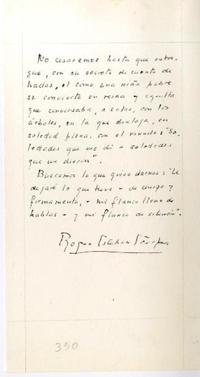 No cesaremos hasta que entre-
gue, con su secreto de cuento de
hadas, el como una niña pobre
se convierte en reina y aquello
que conversaba, a solas, con los
árboles, en la que dialoga, en
soledad plena, con el mundo: "So-
ledades que me di - soledades
que me dieron".
Buscamos lo que quiso darnos: "Le
dejaré lo que tuve - de
firmamento, - mi flanco lleno de
hablas - y mi flanco de silencio".
Roque Esteban Scarpa
350